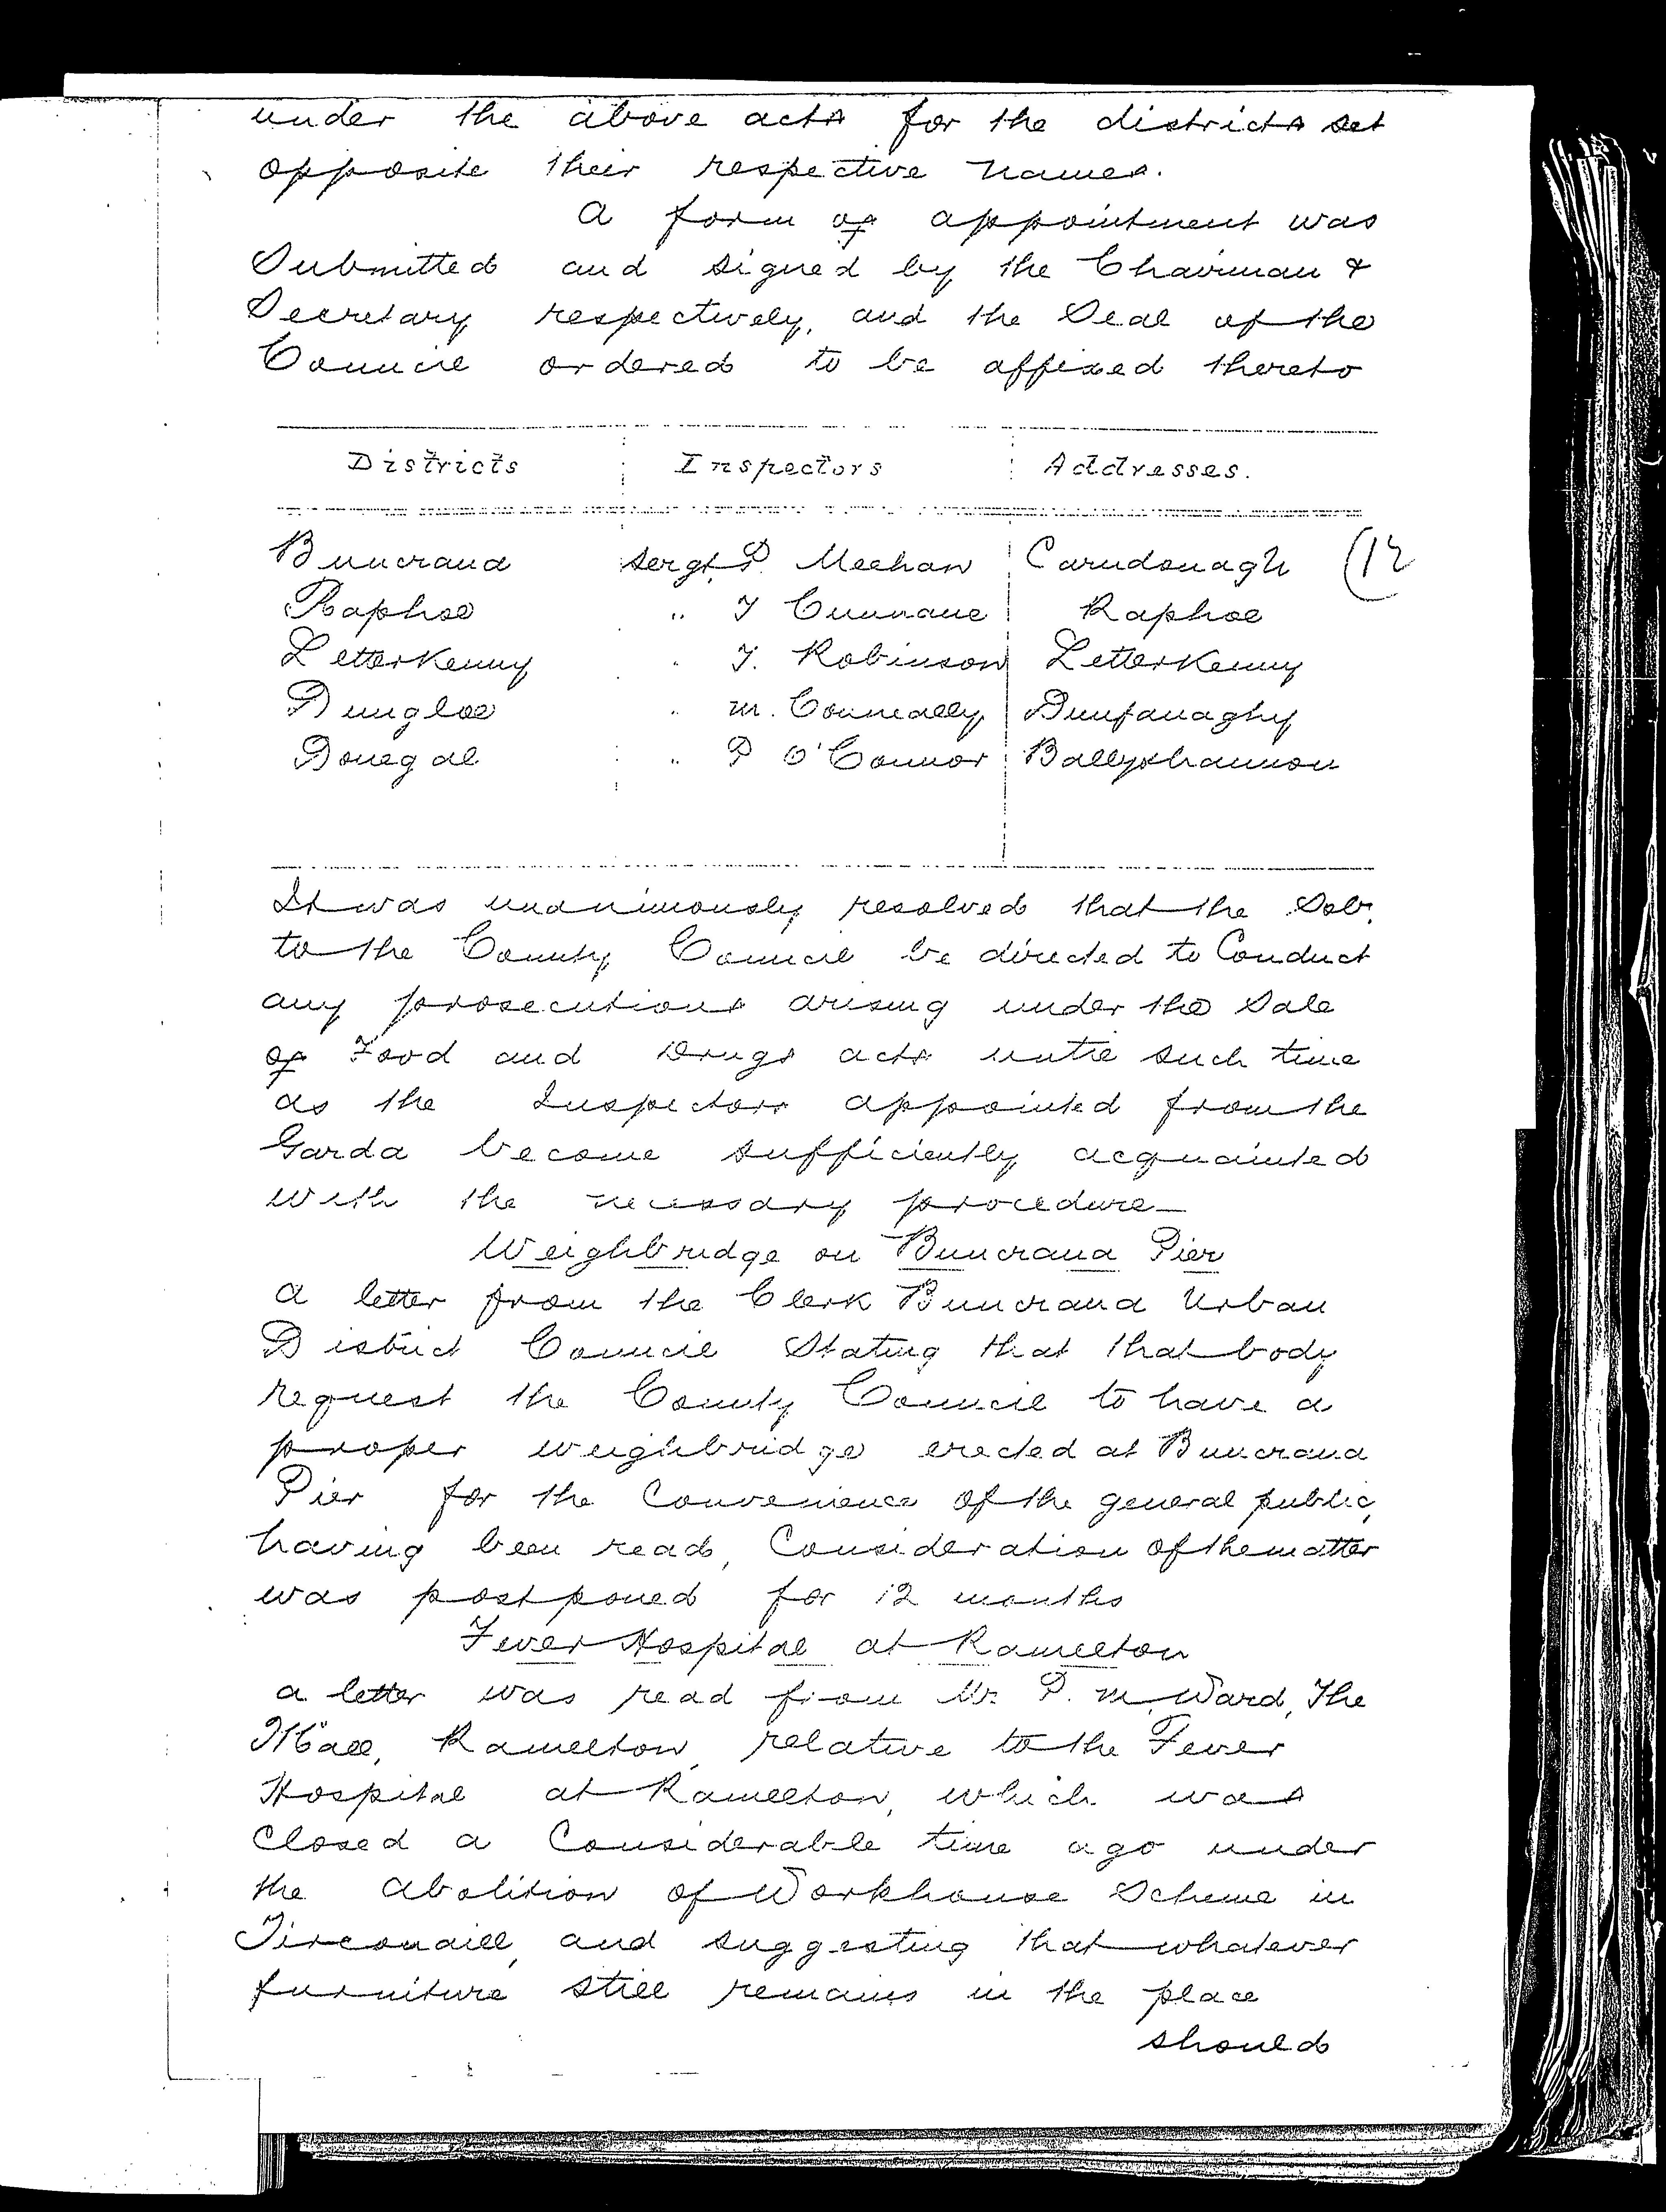 under the above acts for the districts set
opposite their respective names.
A form of appointment was
Submitted and signed by the Chairman &
Secretary respectively, and the Seal of the
Council ordered to be affixed thereto
Districts Inspectors Addresses.
Buncrana Sergt. P. Meehan Carndonagh (12
Raphoe " T Cunnane Raphoe
Letterkenny " J. Robinson Letterkenny
Dungloe " M. Conneally Dunfanaghy
Donegal " P O'Connor Ballyshannon
It was unanimously resolved that the Solr.
to the County Council be directed to Conduct
any prosecutions arising under the Sale
of Food and Drugs acts until such time
as the Inspectors appointed from the
Garda become sufficiently acquainted
with the necessary procedure—
Weighbridge on Buncrana Pier
A letter from the Clerk Buncrana Urban
District Council Stating that that body
request the County Council to have a
proper weighbridge erected at Buncrana
Pier for the Convenience of the general public,
having been read, Consideration of the matter
was postponed for 12 months
Fever Hospital at Ramelton
a letter was read from Mr. P. M. Ward, The
Mall, Ramelton, relative to the Fever
Hospital at Ramelton, which was
Closed a Considerable time ago under
the Abolition of Workhouse Scheme in
Tirconaill, and suggesting that whatever
furniture still remains in the place
should